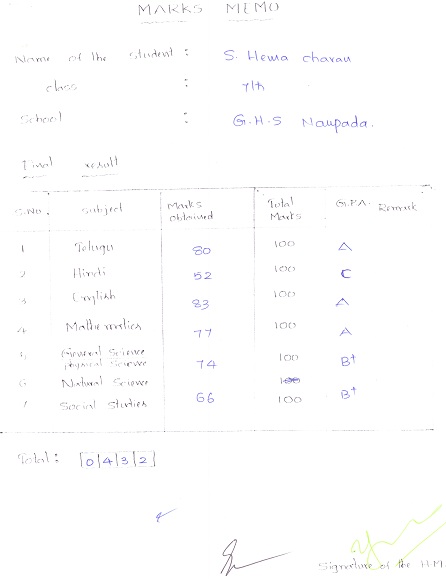 MARKS MEMO
Name of the student : S. Hema charan
class : 7th
School : G.H.S Naupada.
Final result
S.No. Subject Marks obtained Total Marks G.P.A. Remark
1 Telugu 80 100 A
2 Hindi 52 100 C
3 English 83 100 A
4 Mathematics 77 100 A
5 General Science physical Science 74 100 B+
6 Natural Science 100
7 Social Studies 66 100 B+
Total : 0432
Signature of the H.M.